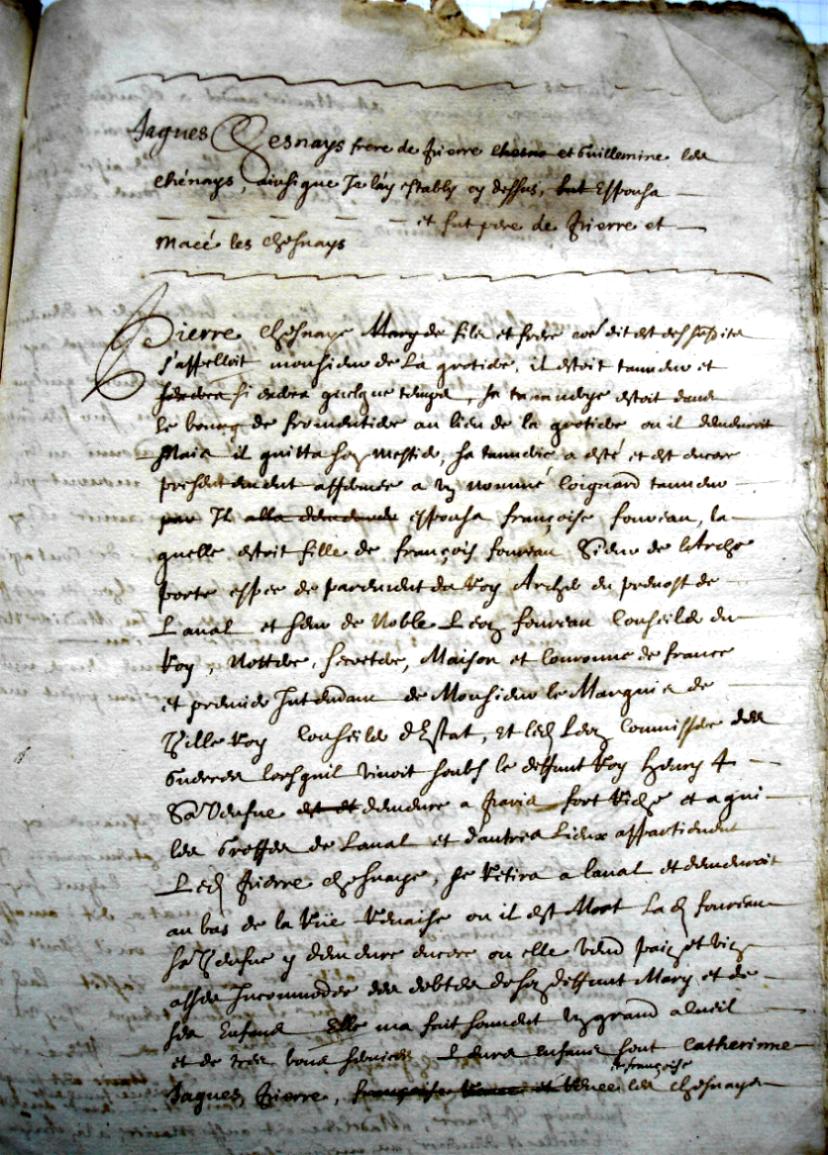 Jaques Chesnays frere de Pierre chesna et Guillemine les
chénays, ainsi que Je l'ay estably cy dessus, but Espousa
et fut pere de Pierre et
Macé les Chesnays
Pierre Chesnaye Mary de fils et frere dit est des susdits
s'appelloit monsieur de La grotide, il estoit tanneur et
si exerca quelque temps, sa tannerye estoit dans
Le bourg de fromentiere au lieu de la grotiere ou il demeuroit
Mais il quitta son mestier, sa tannerie a esté et est encore
presentement affermée a un nommé Coignard tanneur
par Il alla demeurer espousa françoise foureau, la
quelle estoit fille de françois foureau Sieur de Larche
porte espée de parement du Roy Archer du prevost de
Laval et sœur de Noble Leon foureau Conseiller du
Roy, Nottere, secretere, Maison et Couronne de france
et premier Intendant de Monsieur le Marquis de
Ville Roy Conseiller d'Estat, et led Leon Commissere des
Guerres lorsquil vivoit soubs le deffunt Roy Henry 4
Sa Veufve est et demeure a Paris fort riche et a qui
les Greffes de Laval et d'autres Lieux appartienent
Led Pierre chesnaye, se retira a laval et demeuroit
au bas de la Rüe Renaise ou il est Mort Lad foureau
sa Veufve y demeure encore ou elle vend pain et vin
assés Incommodée des debtes de son deffunt Mary et de
ses Enfans Elle ma fait souvent un grand acueil
et de tres bons services Leurs enfans sont Catherinne
et françoise
Jaques, Pierre, françoise Renee et Renee les chesnayes